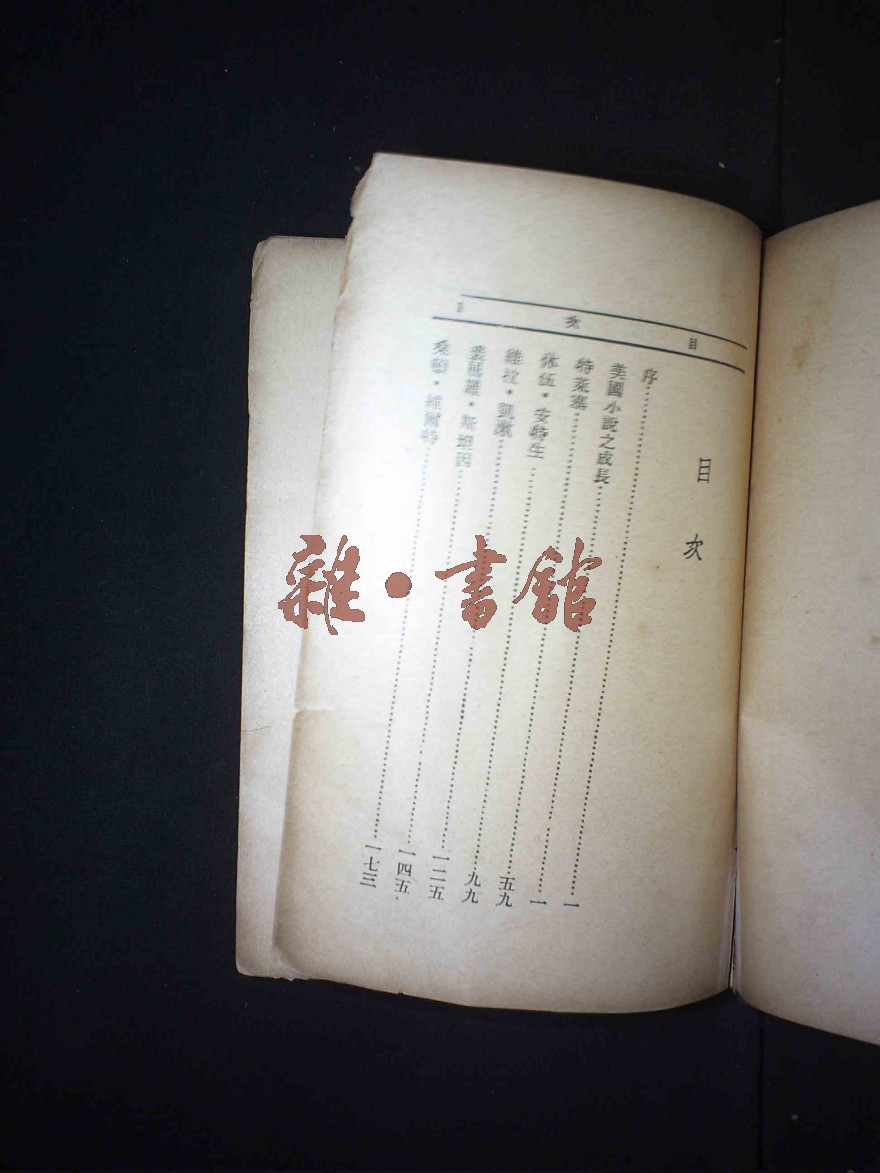 目次
目次
序……一
美國小說之成長……一
特萊塞……五九
休伍・安特生……九九
維拉・凱漱……一二五
裘屈羅・斯坦因……一四五
桑頓・維爾特……一七三
雜・書館